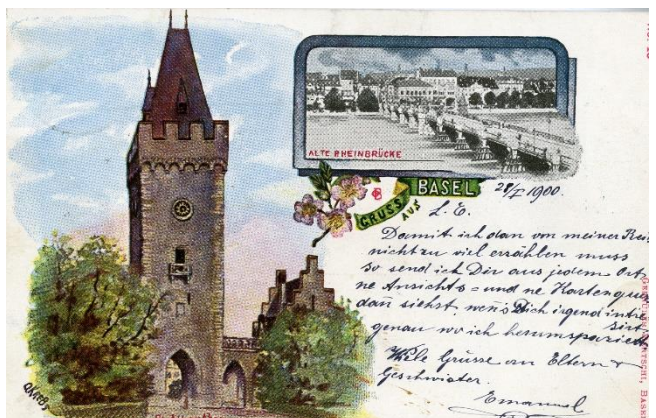 ALTE RHEINBRÜCKE
GRUSS AUS BASEL
28/I 1900.
L. E.
Damit ich dan von meiner Rei
nicht zu viel erzählen muss
so send ich Dir aus jedem Ort
ne Ansichts = und ne Kartengruss
dañ siehst, weñs Dich irgend intre
sirt
genau wo ich herumspaziert
Viele Grüsse an Eltern &
Geschwister.
Emanuel